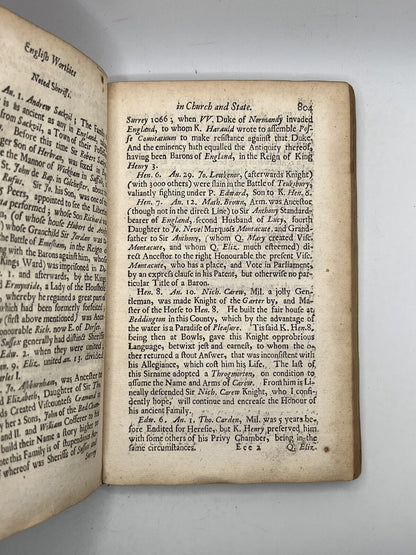 English Worthies
Noted Sheriffs.
An. 1. Andrew Sackvil,
is as ancient as any in Eng-
Before this time Sir Robert Sackvil
St. John de Bap. in
Sir Jo. his Son, was one of
performed; whose Son Richard
(of whose house Hubert de Anestie
whose Grandchild Sir Jordan was
the Battle of Evesham, in the
with the Barons against him, whose
Kings Ward) was imprisoned in
1. and afterwards, by the King
Ermyntide, a Lady of the Houshold
whereby he regained a great part
which had been formerly forfeited;
(first above mentioned)
honorable Rich. now E. of Dorset.
Sussex generally had distinct Sheriffs
Edw. 2. when they were united
united an. 13. divided
was Ancestor to
Elizabeth, Daughter of Sir Tho.
Created Viscountess
her 2 Sons, John of the Bed Cham-
and II. and William Cofferer to
build their Name a story higher
into this Family is of stupendious
whereof was Sheriff of Sussex
Surrey
in Church and State. 804
Surrey 1066; when VV. Duke of Normandy invaded
England, to whom K. Harauld wrote to assemble Pos-
se Comitatum to make resistance against that Duke.
And the eminency hath equalled the Antiquity thereof,
having been Barons of England, in the Reign of King
Henry 3.
Hen. 6. An. 29. Jo. Lewkenor, (afterwards Knight)
(with 3000 others) were slain in the Battle of Teuksbury,
valiantly fighting under P. Edward, Son to K. Hen. 8.
Hen. 7. An. 12. Math. Brown, Arm. was Ancestor
(though not in the direct Line) to Sir Anthony Standard-
bearer of England, second Husband of Lucy, fourth
Daughter to Jo. Nevel Marquess Montacute, and Grand-
father to Sir Anthony, (whom Q. Mary created Visc.
Montacute, and whom Q. Eliz. much esteemed) di-
rect Ancestor to the right Honourable the present Visc.
Montacute, who has a place, and Vote in Parliament,
by an express clause in his Patent, but otherwise no par-
ticular Title of a Baron.
Hen. 8. An. 10. Nich. Carew, Mil. a jolly Gen-
tleman, was made Knight of the Garter by, and Ma-
ster of the Horse to Hen. 8. He built the fair house at
Beddington in this County, which by the advantage of
the water is a Paradise of Pleasure. 'Tis said K. Hen. 8.
being then at Bowls, gave this Knight opprobrious
Language, betwixt jest and earnest, to whom the o-
ther returned a stout Answer, that was inconsistent with
his Allegiance, which cost him his Life. The last of
this Sirname adopted a Throgmorton, on condition to
assume the Name and Arms of Carew. From him is Li-
neally descended Sir Nich. Carew Knight, who I con-
fidently hope, will continue and encrease the Honour of
his ancient Family.
Edw. 6. An. 1. Tho. Carden, Mil. was 5 years be-
fore Endited for Heresie, but K. Henry preserved him
with some others of his Privy Chamber, being in the
same circumstances. Eee 2 Q. Eliz.